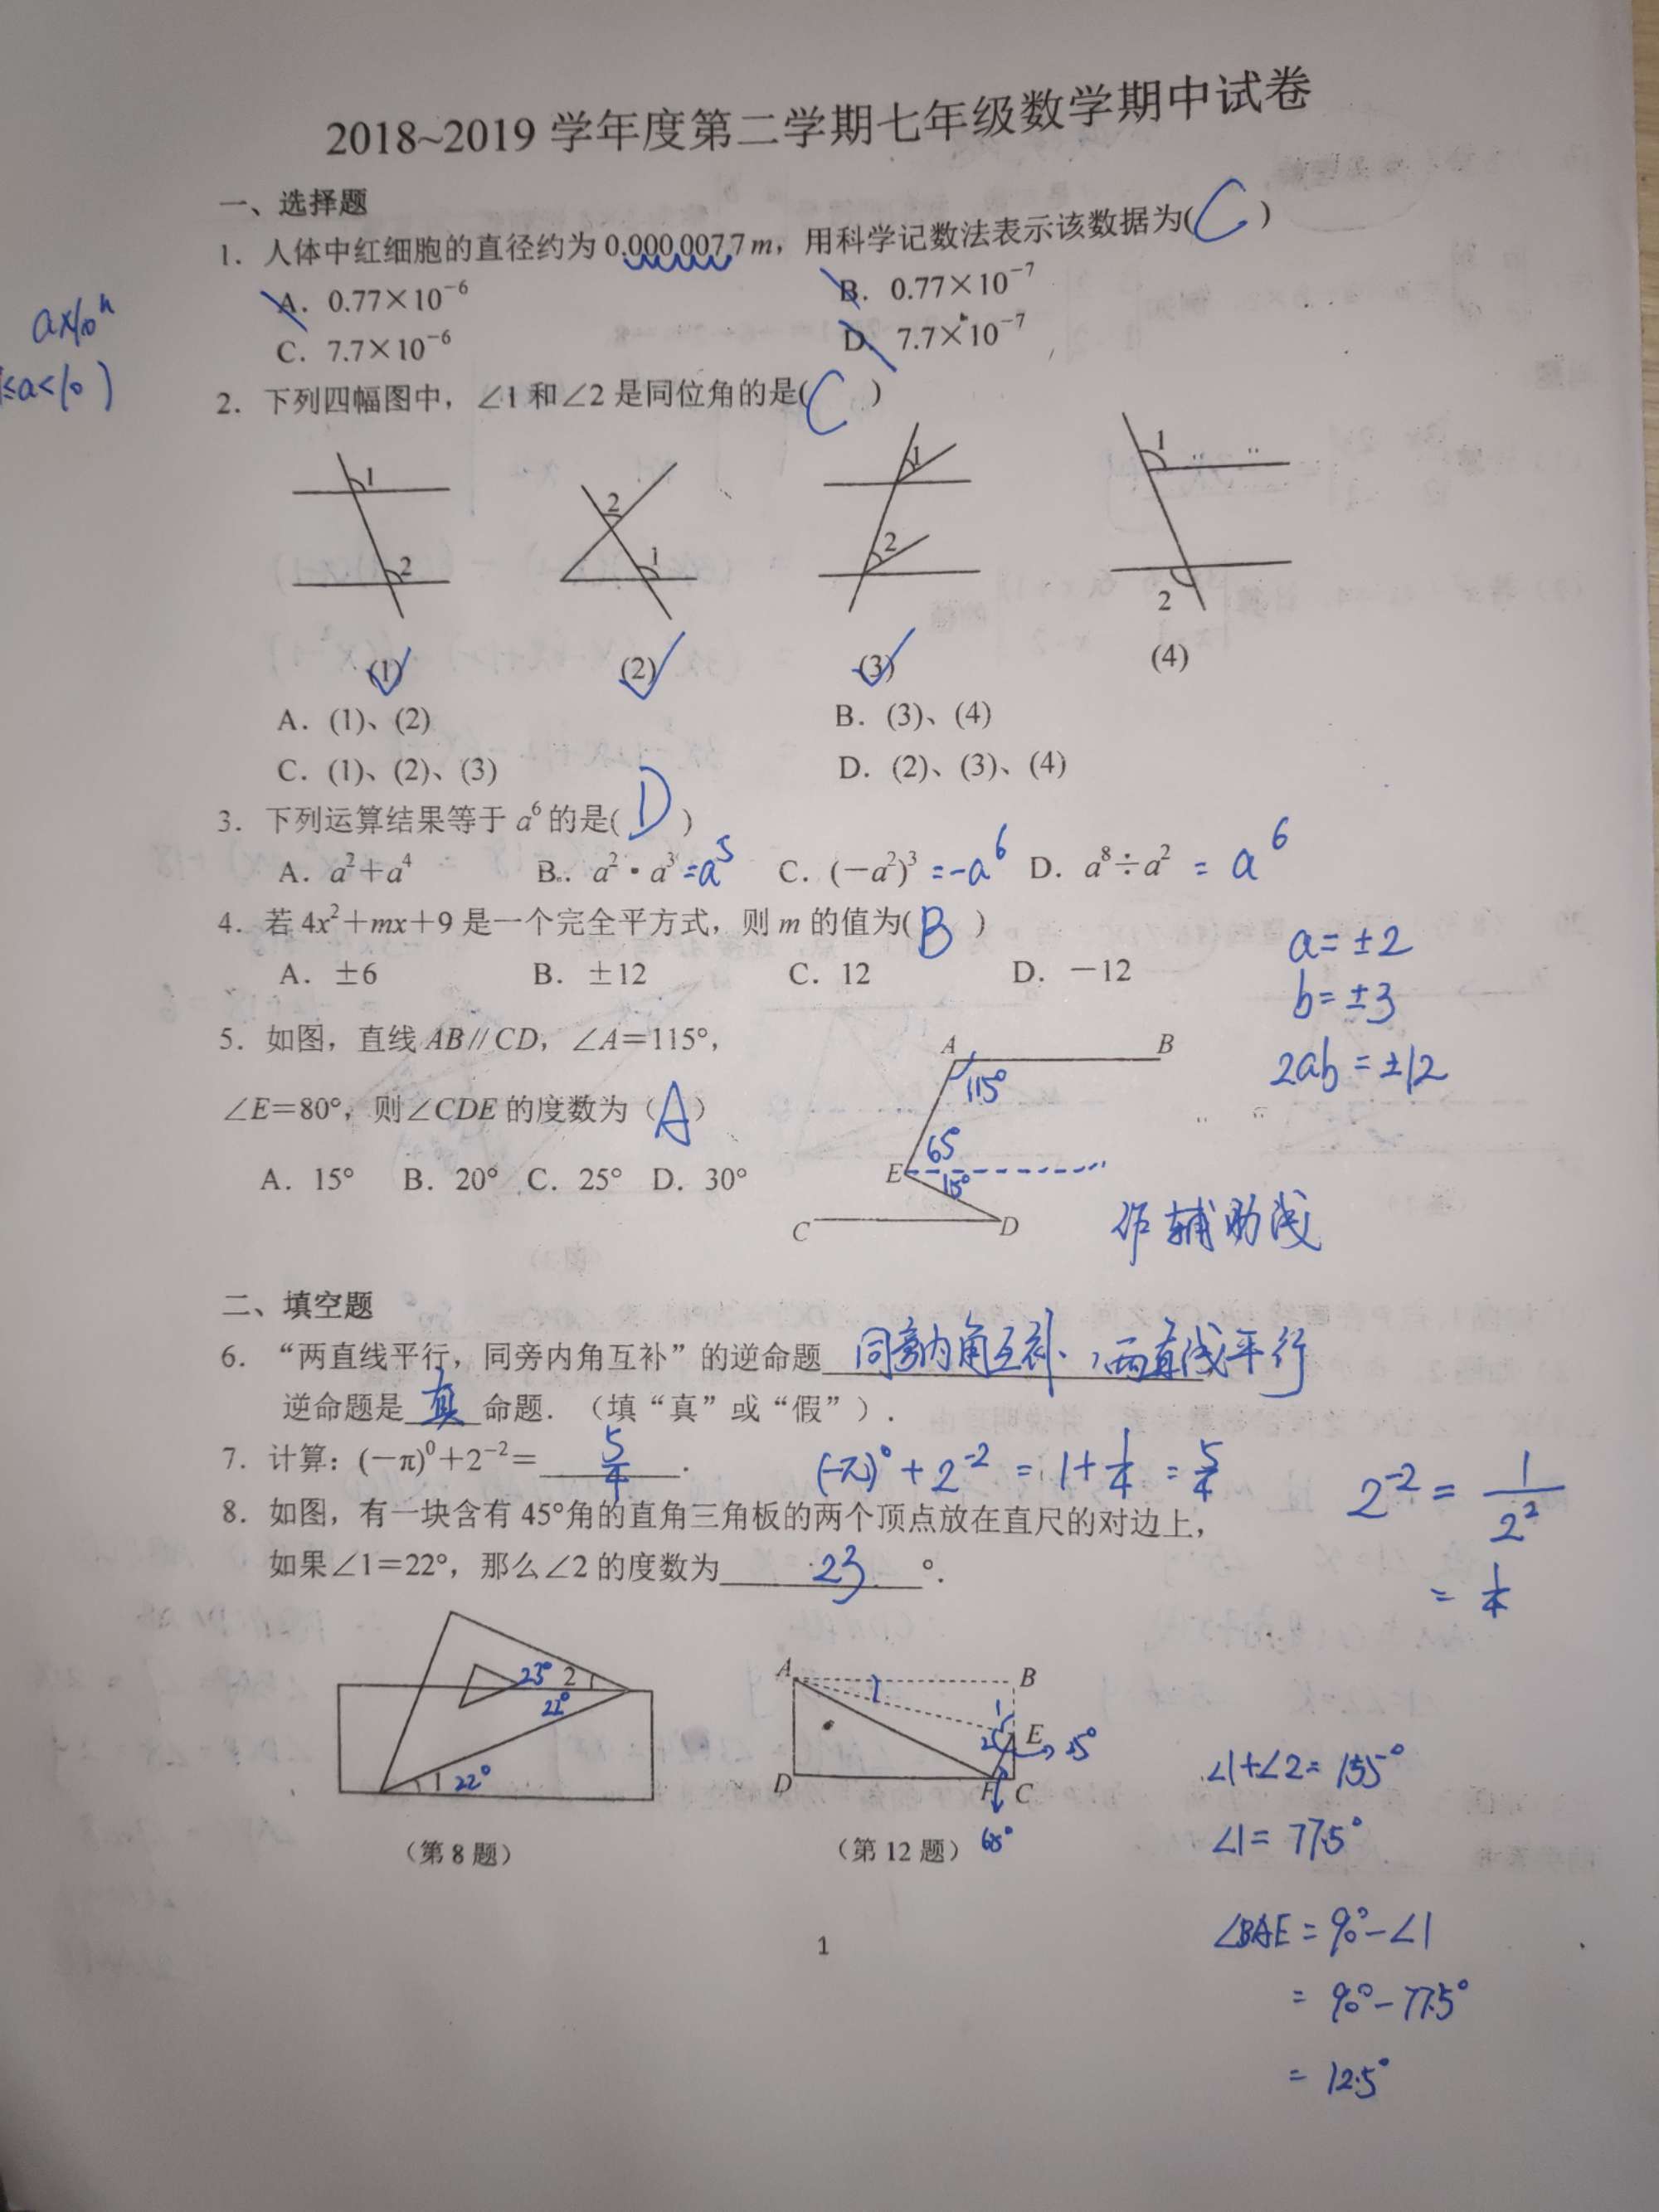 2018~2019 学年度第二学期七年级数学期中试卷
一、选择题
1. 人体中红细胞的直径约为 0.000 007 7 m，用科学记数法表示该数据为( C )
A. 0.77×10⁻⁶ B. 0.77×10⁻⁷
a×10ⁿ
C. 7.7×10⁻⁶ D. 7.7×10⁻⁷
≤a<10)
2. 下列四幅图中，∠1 和∠2 是同位角的是( C )
1 2 1 1
2 1 2
2 2
(1) (2) (3) (4)
A. (1)、(2) B. (3)、(4)
C. (1)、(2)、(3) D. (2)、(3)、(4)
3. 下列运算结果等于 a⁶ 的是( D )
A. a²+a⁴ B. a²·a³ =a⁵ C. (−a²)³ =-a⁶ D. a⁸÷a² = a⁶
4. 若 4x²+mx+9 是一个完全平方式，则 m 的值为( B )
a=±2
A. ±6 B. ±12 C. 12 D. −12
b=±3
2ab=±12
5. 如图，直线 AB∥CD，∠A=115°，
∠E=80°，则∠CDE 的度数为（ A ）
A. 15° B. 20° C. 25° D. 30°
A B
115°
65
E 15°
C D
作辅助线
二、填空题
6. “两直线平行，同旁内角互补”的逆命题 同旁内角互补，两直线平行
逆命题是 真 命题. （填“真”或“假”）.
7. 计算：(−π)⁰+2⁻²= 5/4 .
(-π)⁰+2⁻² = 1+1/4 = 5/4
2⁻² = 1/2²
= 1/4
8. 如图，有一块含有 45°角的直角三角板的两个顶点放在直尺的对边上，
如果∠1=22°，那么∠2 的度数为 23 °.
23° 2
22°
1 22°
A B
1
E 25°
2
D F C
65°
（第 8 题） （第 12 题）
∠1+∠2=155°
∠1=77.5°
∠BAE=90°-∠1
= 90°-77.5°
= 12.5°
1